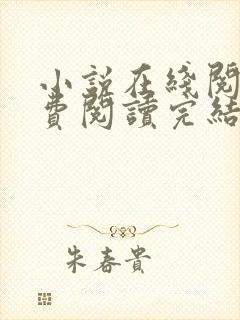 小說在綫閱
費閱讀完結
朱春貴